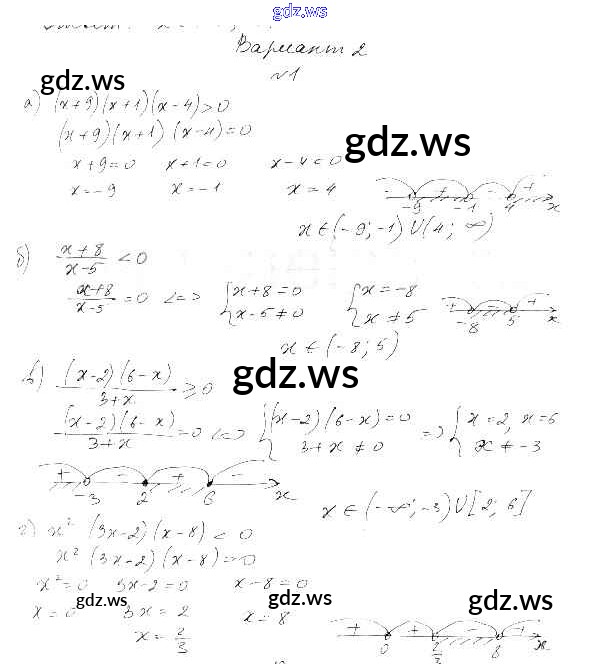 gdz.ws
Вариант 2
gdz.ws
№1
а) (x+9)(x+1)(x-4)>0
(x+9)(x+1)(x-4)=0
gdz.ws
x+9=0 x+1=0 x-4=0
x=-9 x=-1 x=4
- + - +
-9 -1 4 x
x∈(-9;-1)∪(4;∞)
б) (x+8)/(x-5) <0
(x+8)/(x-5) =0 <=> { x+8=0 { x=-8
x-5≠0 x≠5
+ - +
-8 5 x
x∈(-8;5)
gdz.ws
в) (x-2)(6-x)/(3+x) ≥0
(x-2)(6-x)/(3+x) =0 <=> { (x-2)(6-x)=0 => { x=2, x=6
3+x≠0 x≠-3
+ - + -
-3 2 6 x
x∈(-∞;-3)∪[2;6]
г) x² (3x-2)(x-8)<0
x² (3x-2)(x-8)=0
x²=0 3x-2=0 x-8=0
gdz.ws gdz.ws gdz.ws
x=0 3x=2 x=8
x=2/3
+ + - +
0 2/3 8 x